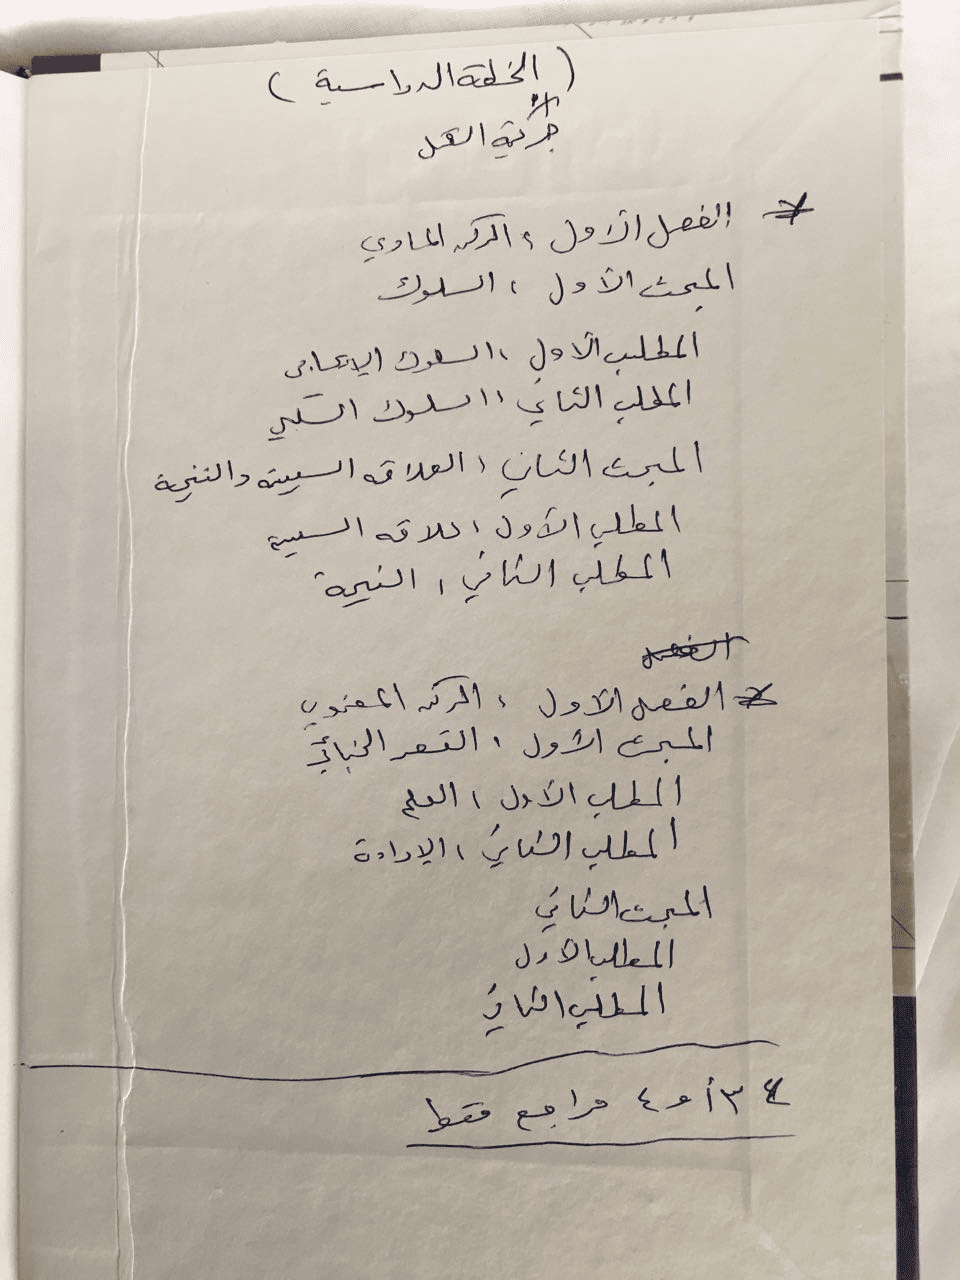 ( الخطة الدراسية )
جريمة القتل
الفصل الأول : الركن المادي
المبحث الأول : السلوك
المطلب الأول : السلوك الإيجابي
المطلب الثاني : السلوك السلبي
المبحث الثاني : العلاقه السببية والنتيجة
المطلب الأول : علاقه السببية
المطلب الثاني : النتيجة
الفصل
الفصل الأول : الركن المعنوي
المبحث الأول : القصد الجنائي
المطلب الأول : العلم
المطلب الثاني : الإرادة
المبحث الثاني
المطلب الأول
المطلب الثاني
٣ أو ٤ مراجع فقط